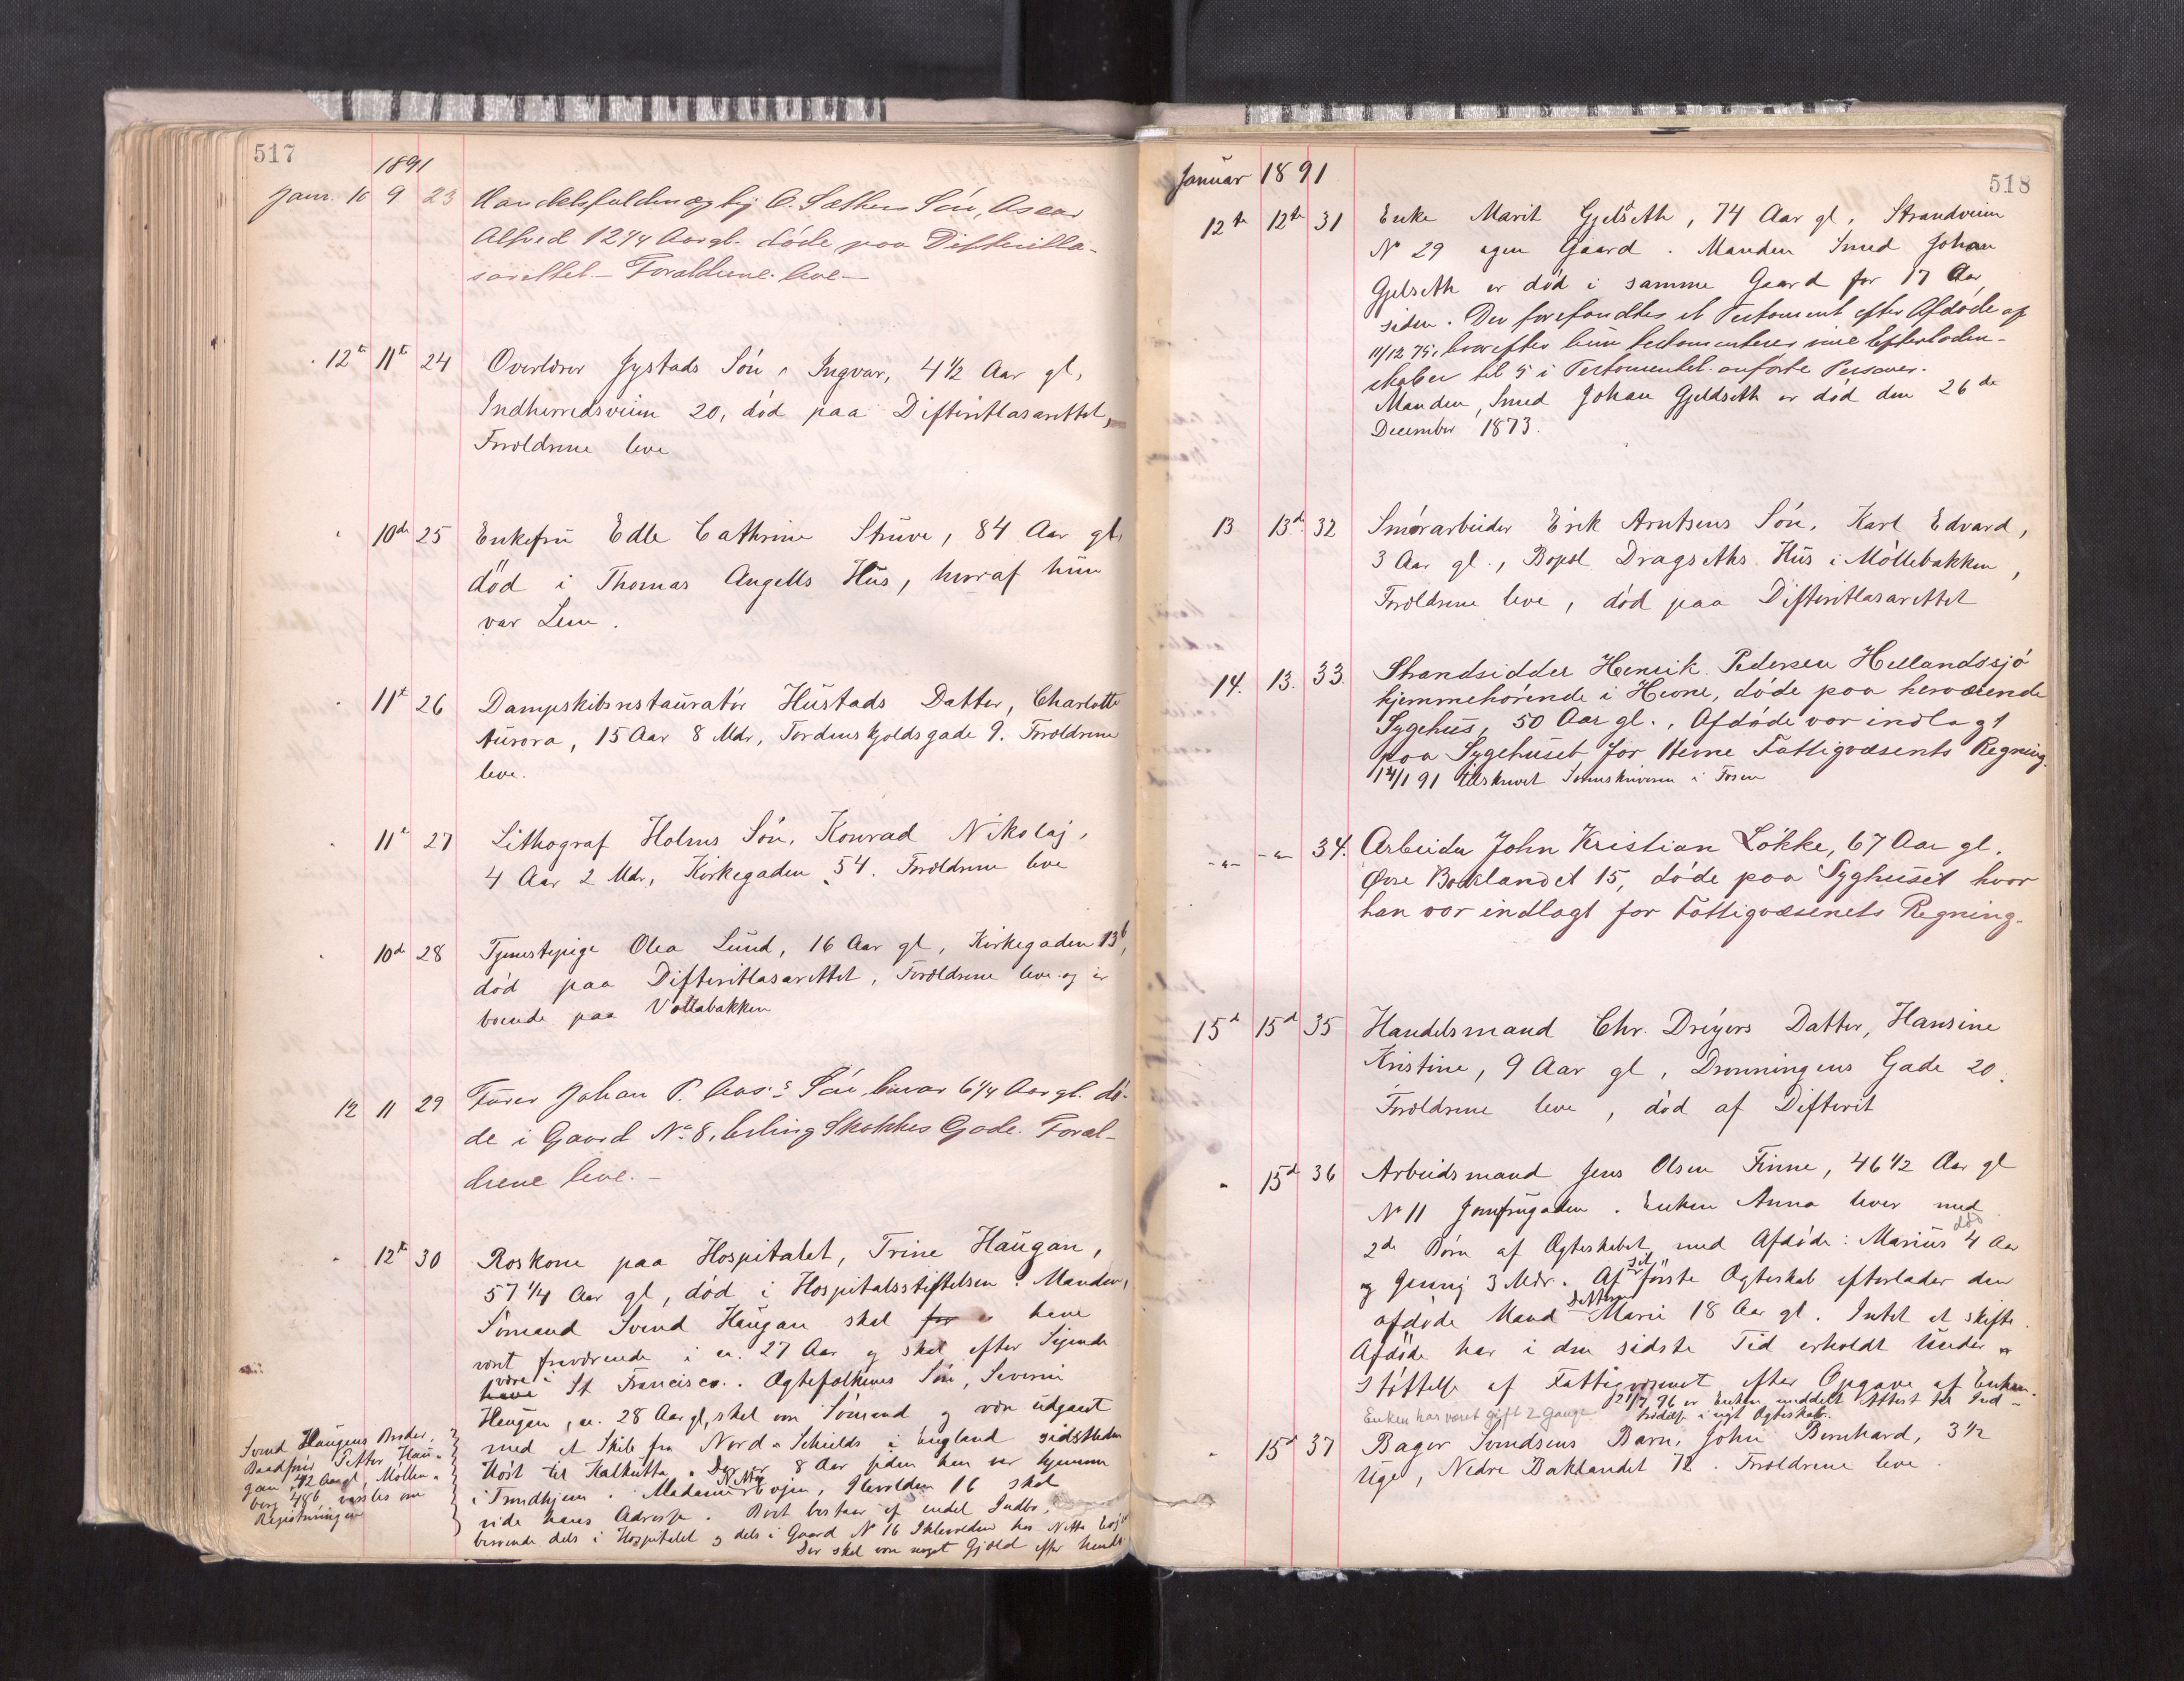 517
1891
Janr. 10 9 23 Handelsfuldmægtig O. Sæthers Søn, Oscar
Alfred 12 1/4 Aar gl. døde paa Difteritla-
sarettet. - Forældrene leve -
12te 11te 24 Overlærer Jystads Søn, Ingvar, 4 1/2 Aar gl,
Indherredsveien 20, død paa Difteritlasarettet,
Forældrene leve
10de 25 Enkefru Edle Cathrine Struve, 84 Aar gl,
død i Thomas Angells Hus, hvoraf hun
var Lem.
11te 26 Dampskibsrestauratør Hustads Datter, Charlotte
Aurora, 15 Aar 8 Mdr, Tordenskjoldsgade 9. Forældrene
leve.
11te 27 Lithograf Holms Søn, Konrad Nikolaj,
4 Aar 2 Mdr, Kirkegaden 54. Forældrene leve
10de 28 Tjenestepige Olea Lund, 16 Aar gl, Kirkegaden 13b,
død paa Difteritlasarettet, Forældrene leve og er
boende paa Vollabakken
12 11 29 Fører Johan P. Aas's Søn, 6 1/4 Aar gl. dø-
de i Gaard No 8, Erling Skakkes Gade. Foræl-
drene leve. -
12te 30 Roskone paa Hospitalet, Trine Haugan,
57 1/4 Aar gl, død i Hospitalsstiftelsen. Manden,
Sømand Svend Haugan skal for have
været fraværende i ca. 27 Aar og skal efter Sigende
være i
have St Francisco. Ægtefolkenes Søn, Severin
Haugan, ca. 28 Aar gl, skal være Sømand og være udgaaet
med et Skib fra Nord-Schields i England sidstleden
Høst til Kalkutta. Det er 8 Aar siden han var hjemme
i Trondhjem. Madame Netta Evjen, Ilevolden 16 skal
vide hans Adresse. Boet bestaar af endel Indbo,
beroende dels i Hospitalet og dels i Gaard No 16 Ilevolden hos Netta Evjen
Der skal være noget Gjæld efter hende
Svend Haugens Broder,
Baadfører Petter Hau-
gan, 42 Aar gl, Møllen-
berg 48b, varsles om
Registreringen
Januar 1891
518
12te 12te 31 Enke Marit Gjeldseth, 74 Aar gl, Strandveien
No 29 egen Gaard. Manden Smed Johan
Gjelseth er død i samme Gaard for 17 Aar
siden. Der forefandtes et Testament efter Afdøde af
11/12 75, hvorefter hun testamenterer sine Efterladen-
skaber til 5 i Testamentet anførte Personer.
Manden, Smed Johan Gjeldseth er død den 26de
December 1873.
13 13de 32 Smørarbeider Erik Arntsens Søn, Karl Edvard,
3 Aar gl., Bopæl Dragseths Hus i Møllebakken,
Forældrene leve, død paa Difteritlasarettet
14. 13. 33. Strandsidder Henrik Pedersen Hellandssjø
hjemmehørende i Hevne, døde paa herværende
Sygehus, 50 Aar gl., Afdøde var indlagt
paa Sygehuset for Hevne Fattigvæsents Regning.
14/1 91 tilskrevet Sorenskriveren i Fosen
-"- -"- 34. Arbeider John Kristian Løkke, 67 Aar gl.
Øvre Baklandet 15, døde paa Syghuset hvor
han var indlagt for Fattigvæsenets Regning.
15de 15de 35 Handelsmand Chr. Dreyers Datter, Hansine
Kristine, 9 Aar gl, Dronningens Gade 20.
Forældrene leve, død af Difterit
15de 36 Arbeidsmand Jens Olsen Finne, 46 1/2 Aar gl
No 11 Jomfrugaden. Enken Anna lever med
død
2de Børn af Ægteskabet med Afdøde: Marius 4 Aar
og Jenny 3 Mdr. Af sit første Ægteskab efterlader den
afdøde Mand Datteren Marie 18 Aar gl. Intet at skifte.
Afdøde har i den sidste Tid erholdt Under-
støttelse af Fattigvæsenet efter Opgave af Enken.
21/7 96 er Enken meddelt Attest til Ind-
Enken har været gift 2 Gange trædelse i nyt Ægteskab.
15de 37 Bager Svendsens Barn, John Bernhard, 3 1/2
Uge, Nedre Baklandet 72. Forældrene leve.